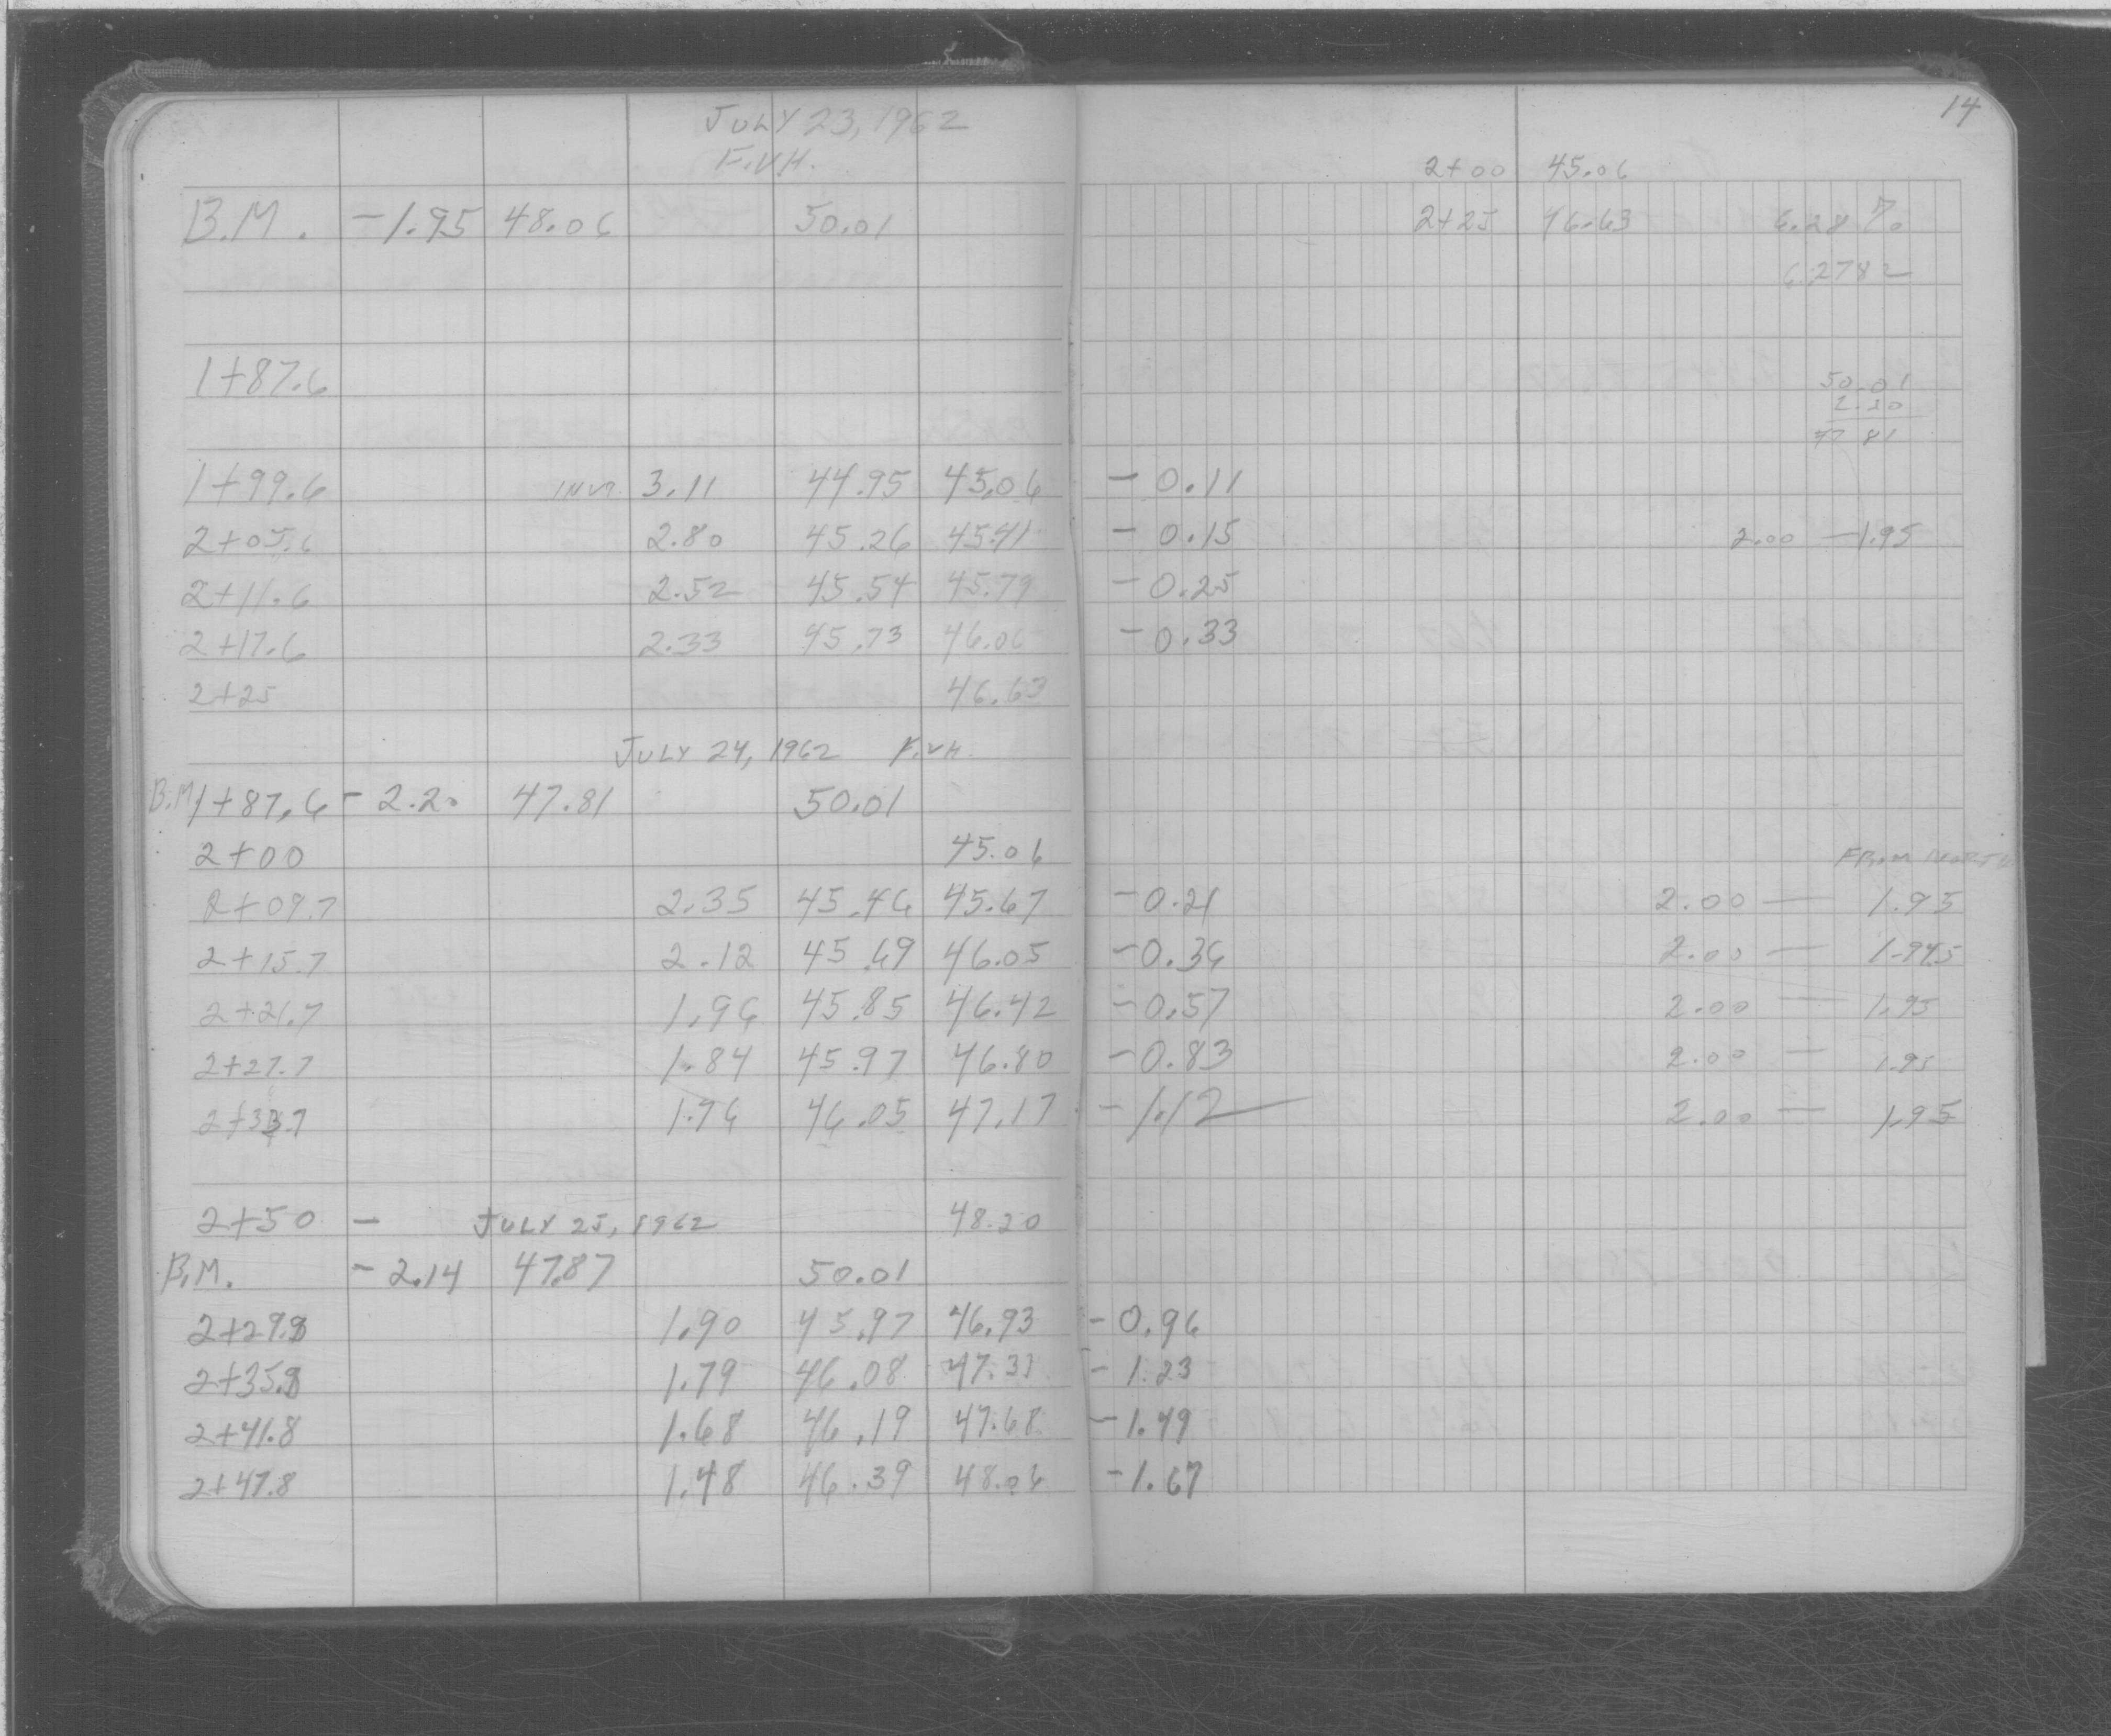 14
JULY 23, 1962
F.V.H.
2+00 45.06
B.M. -1.95 48.06 50.01 2+25 46.63 6.28 %
6.2782
1+87.6 50.01
2.20
47 81
1+99.6 INVT. 3.11 44.95 45.06 - 0.11
2+05.6 2.80 45.26 45.41 - 0.15 2.00 - 1.95
2+11.6 2.52 45.54 45.79 - 0.25
2+17.6 2.33 45.73 46.06 - 0.33
2+25 46.63
JULY 24, 1962 F.V.H.
B.M. 1+87.6 - 2.20 47.81 50.01
2+00 45.06
FROM NORTH
2+09.7 2.35 45.46 45.67 -0.21 2.00 — 1.95
2+15.7 2.12 45.69 46.05 -0.36 2.00 — 1.945
2+21.7 1.96 45.85 46.42 -0.57 2.00 — 1.95
2+27.7 1.84 45.97 46.80 -0.83 2.00 — 1.95
2+33.7 1.76 46.05 47.17 -1.12 2.00 — 1.95
2+50 - JULY 25, 1962 48.20
B.M. - 2.14 47.87 50.01
2+29.8 1.90 45.97 46.93 - 0.96
2+35.8 1.79 46.08 47.31 - 1.23
2+41.8 1.68 46.19 47.68 - 1.49
2+47.8 1.48 46.39 48.06 - 1.67